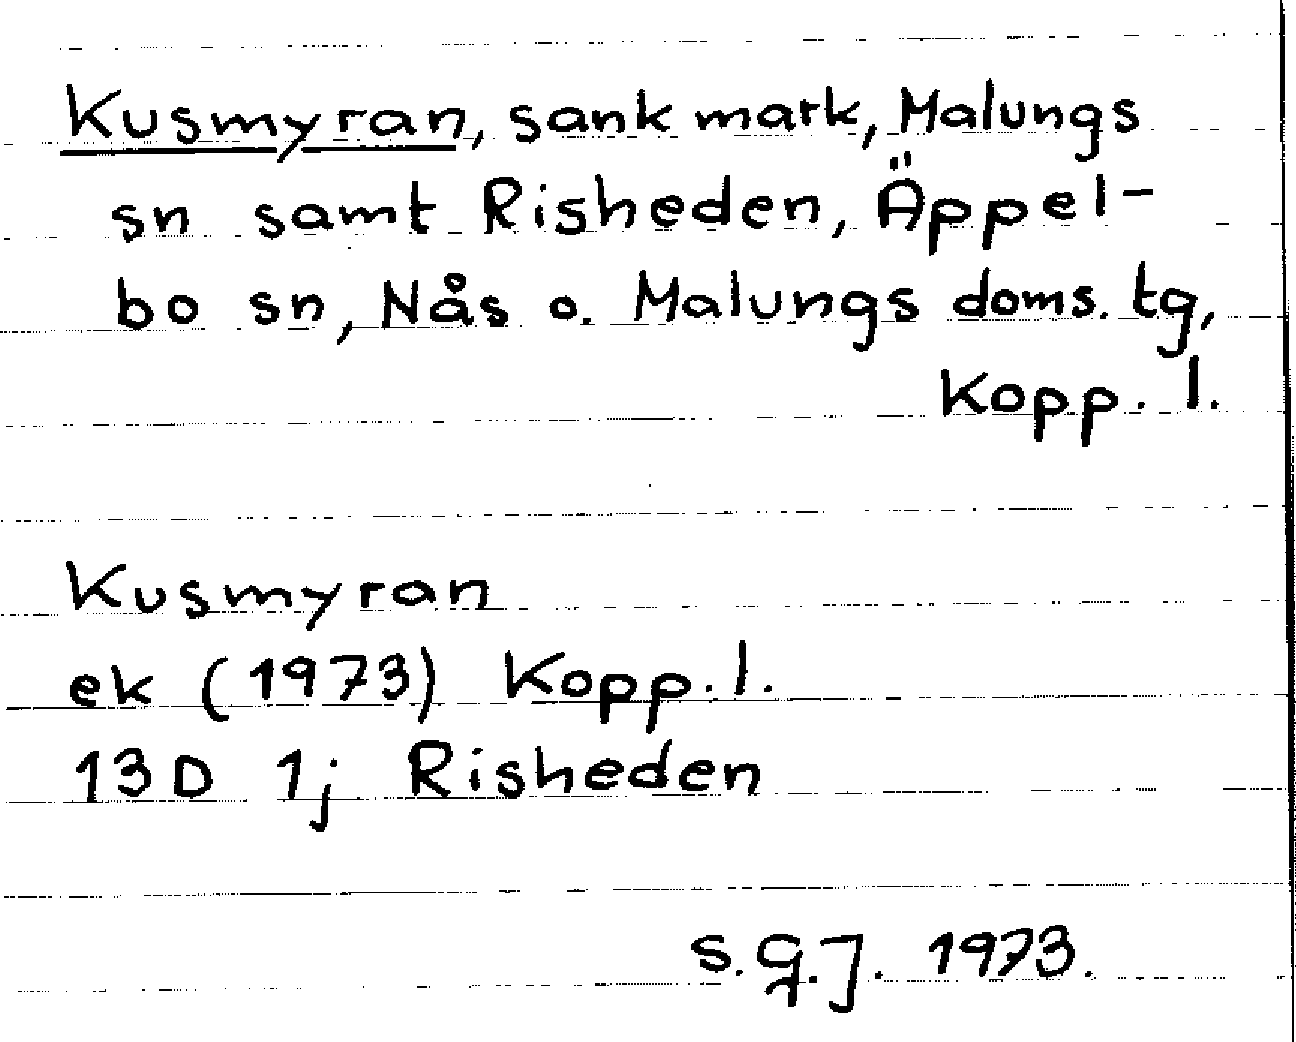 Kusmyran, sank mark, Malungs
sn samt Risheden, Äppel-
bo sn, Nås o. Malungs doms. tg,
Kopp. l.
Kusmyran
ek (1973) Kopp. l.
13D 1j Risheden
S.G.J. 1973.